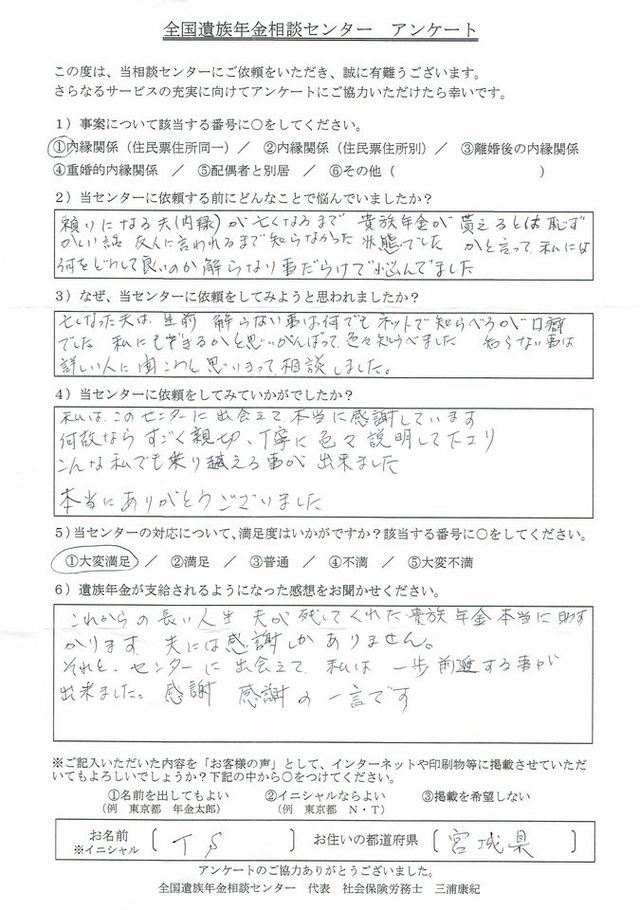 全国遺族年金相談センター　アンケート
この度は、当相談センターにご依頼をいただき、誠に有難うございます。
さらなるサービスの充実に向けてアンケートにご協力いただけたら幸いです。
1）事案について該当する番号に○をしてください。
①内縁関係（住民票住所同一）／　②内縁関係（住民票住所別）／　③離婚後の内縁関係
④重婚的内縁関係　／　⑤配偶者と別居　／　⑥その他（　　　　　　　　　　）
2）当センターに依頼する前にどんなことで悩んでいましたか？
頼りになる夫(内縁)が亡くなるまで 貴族年金が 貰えるとは恥ず
かしい話 友人に言われるまで知らなかった 状態でした かと言って 私には
何をどうして良いのか 解らない事だらけで悩んでました
3）なぜ、当センターに依頼をしてみようと思われましたか？
亡しなた夫は、生前 解らない事は何でもネットで知らべろが口癖
でした 私にもできるかと思いがんばって、色々知らべました 知らない事は
詳しい人に聞こうと思い立って、相談しました。
4）当センターに依頼をしてみていかがでしたか？
私は、このセンターに出会えて、本当に感謝しています
何故なら すごく親切、丁寧に色々説明して下さり
こんな私でも乗り越える事が 出来ました
本当にありがとうございました
5）当センターの対応について、満足度はいかがですか？該当する番号に○をしてください。
①大変満足　／　②満足　／　③普通　／　④不満　／　⑤大変不満
6）遺族年金が支給されるようになった感想をお聞かせください。
これからの長い人生 夫が残してくれた貴族年金 本当に助す
かります 夫には感謝しかありません。
それと、センターに出会えて、私は 一歩前進する事が
出来ました。 感謝 感謝の一言です
※ご記入いただいた内容を「お客様の声」として、インターネットや印刷物等に掲載させていただ
いてもよろしいでしょうか？下記の中から○をつけてください。
①名前を出してもよい　②イニシャルならよい　③掲載を希望しない
（例　東京都　年金太郎）　（例　東京都　N・T）
お名前
※イニシャル　〔 T S 〕　お住いの都道府県〔 宮城県 〕
アンケートのご協力ありがとうございました。
全国遺族年金相談センター　代表　社会保険労務士　三浦康紀